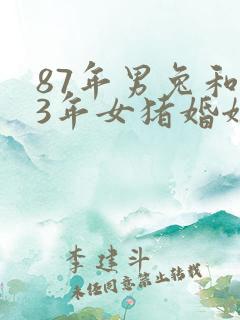 87年男兔和
3年女猪婚
李建斗
未经同意禁止转载